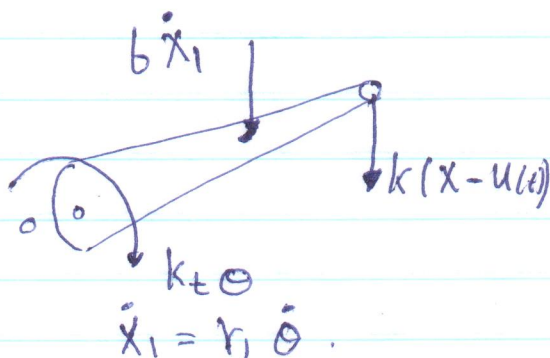 bẋ₁
k(x-u(t))
o
k_t θ
ẋ₁ = r₁ θ̇.